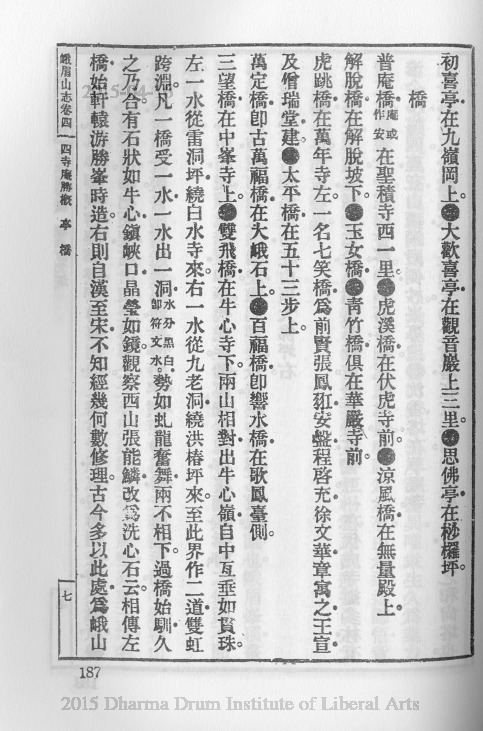 初喜亭在九嶺岡上。●大歡喜亭在觀音巖上三里。●思佛亭在桫欏坪。
橋
普庵橋庵或作安在聖積寺西一里。●虎溪橋在伏虎寺前。●涼風橋在無量殿上。
解脫橋在解脫坡下。●玉女橋●青竹橋俱在華嚴寺前。
虎跳橋在萬年寺左。一名七笑橋爲前賢張鳳䎖安盤程啓充徐文華章寓之王宣
及僧瑞堂建。●太平橋在五十三步上。
萬定橋卽古萬福橋在大峨石上。●百福橋卽響水橋在歌鳳臺側。
三望橋在中峯寺上。●雙飛橋在牛心寺下。兩山相對出牛心嶺自中互垂如貫珠。
左一水從雷洞坪繞白水寺來。右一水從九老洞繞洪椿坪來。至此界作二道雙虹
跨淵。凡一橋受一水一水出一洞水分黑白。卽符文水。勢如虬龍奮舞兩不相下。過橋始馴久
之乃合。有石狀如牛心鎭峽口晶瑩如鏡。觀察西山張能鱗改爲洗心石云。相傳左
橋始軒轅游勝峯時造。右則自漢至宋不知經幾何數修理。古今多以此處爲峨山
峨眉山志卷四 四寺庵勝概 亭 橋
七
187
2015 Dharma Drum Institute of Liberal Arts